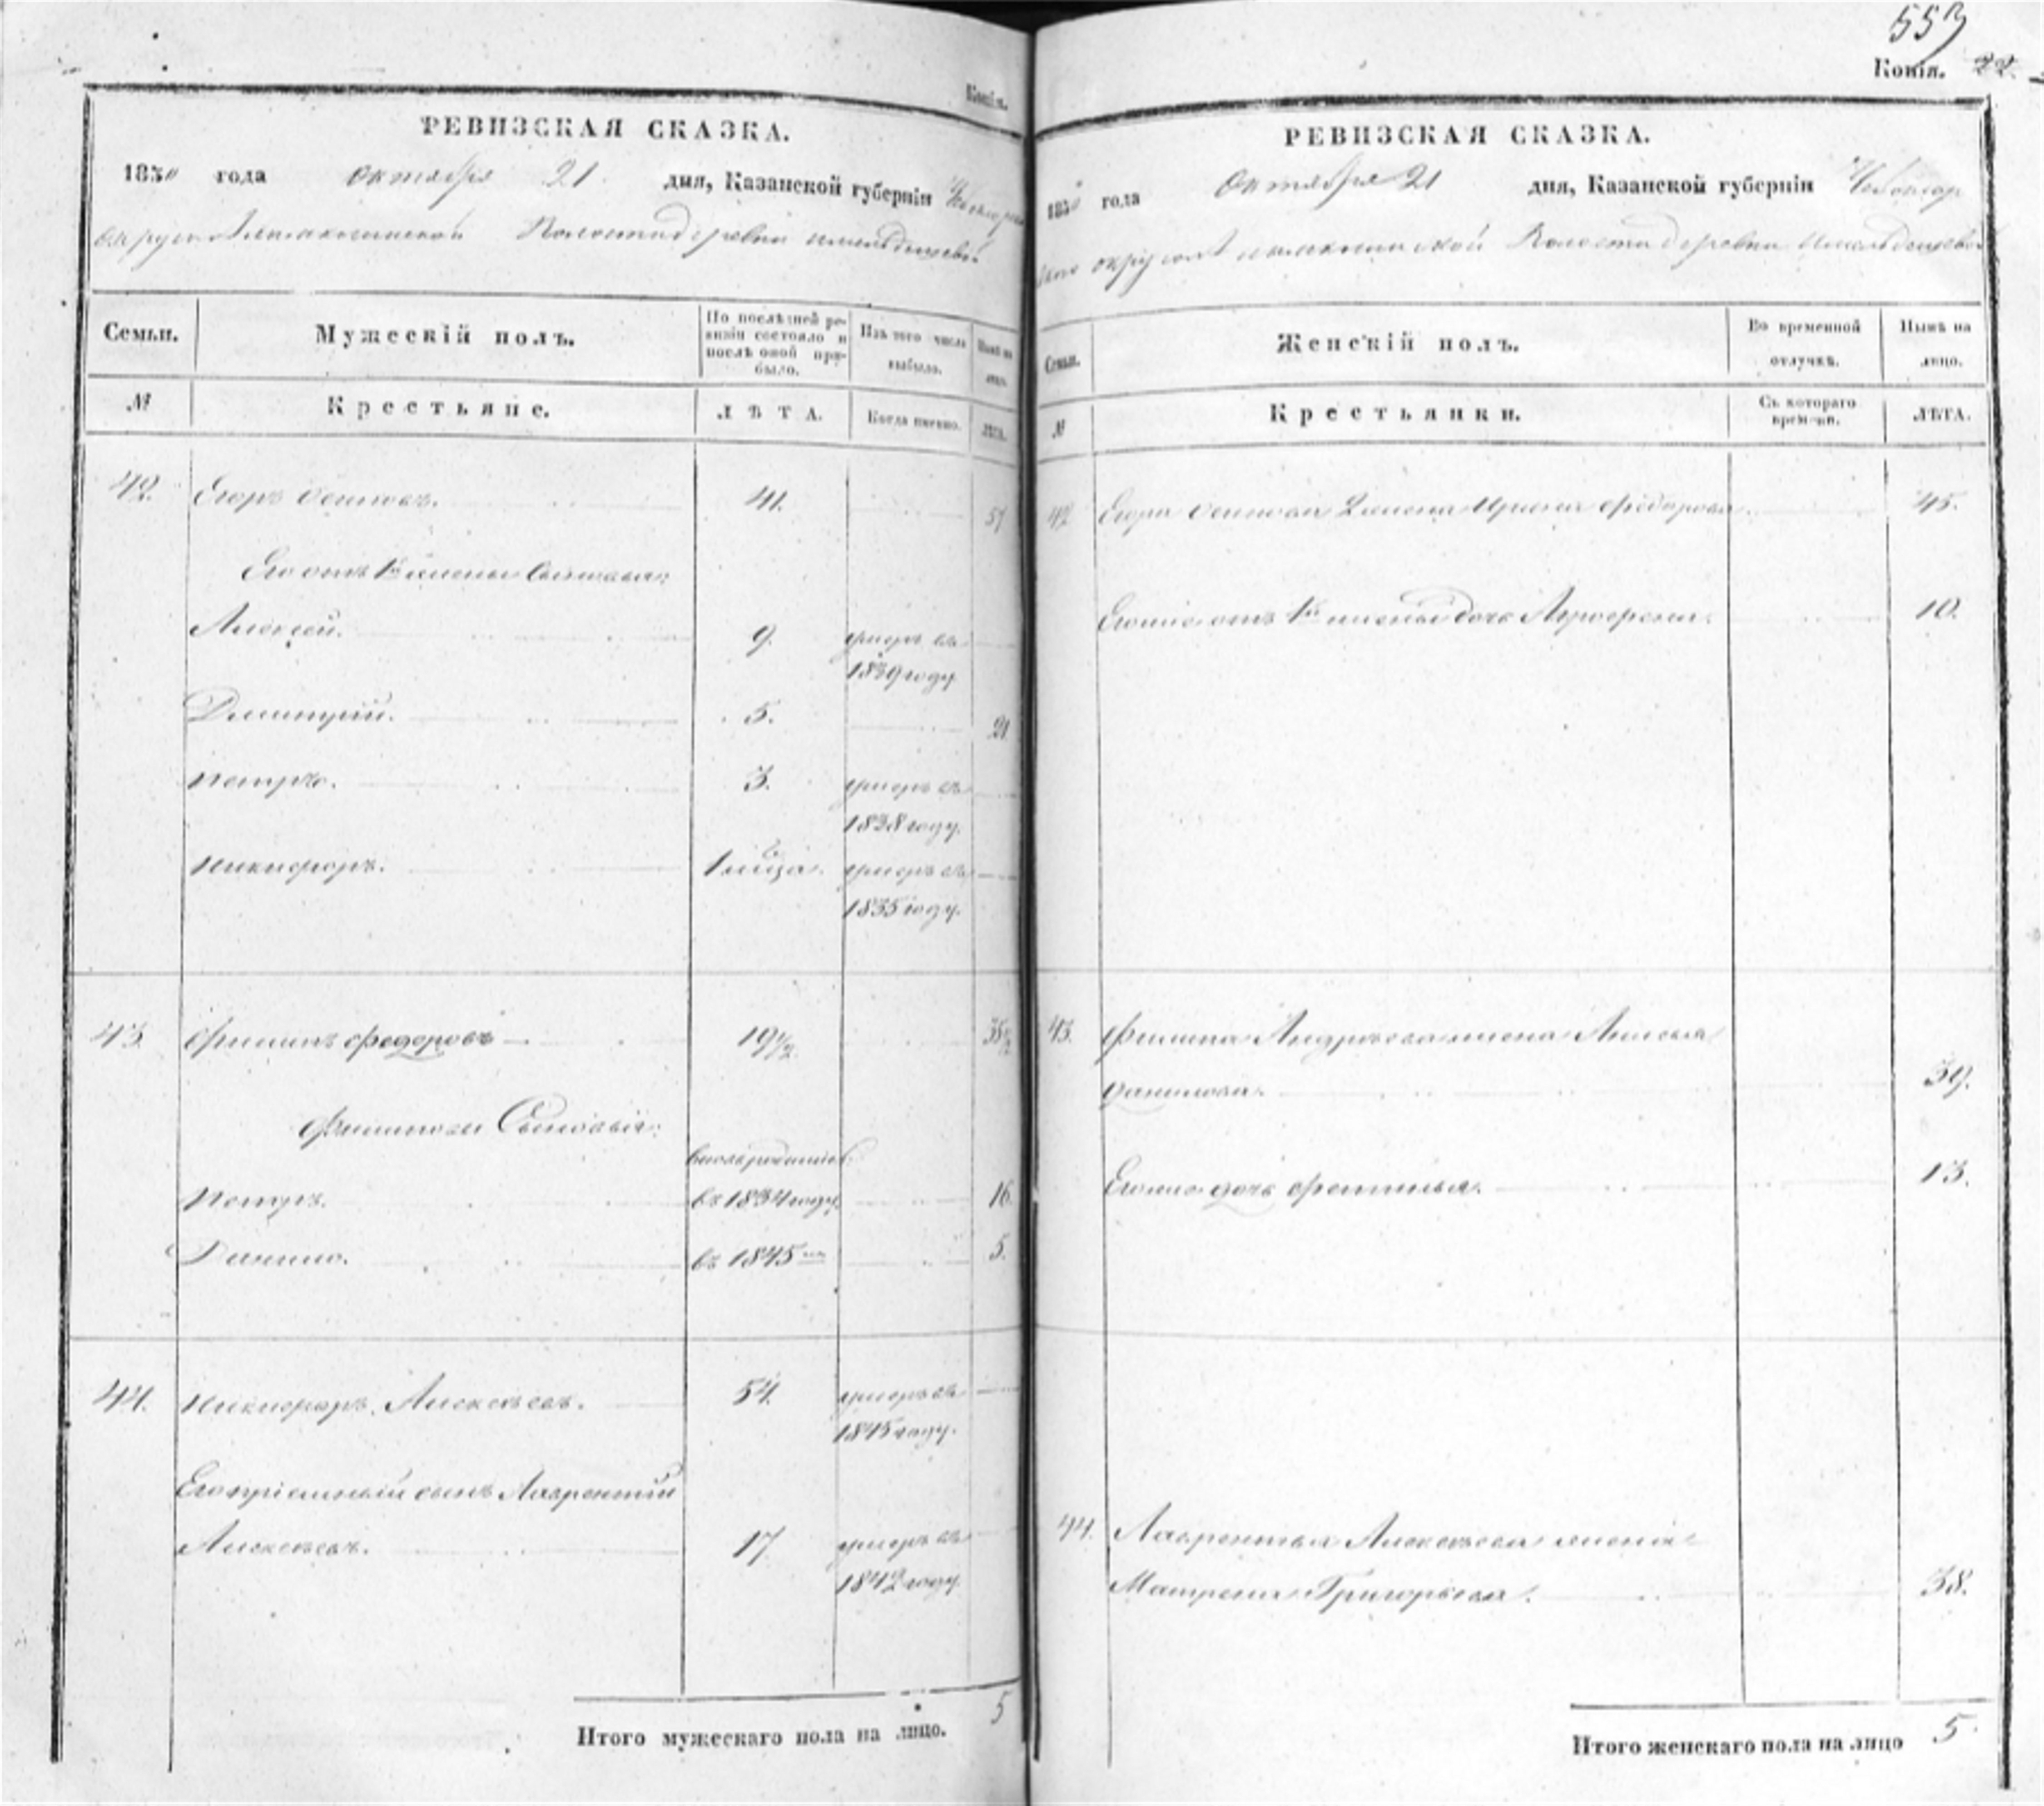 Копія.
РЕВИЗСКАЯ СКАЗКА.
1850 года Октября 21 дня, Казанской губерніи
Волости деревни
Семьи. Мужескій полъ. По послѣдней ревизіи состояло и послѣ оной прибыло. Изъ того числа выбыло. Нынѣ на лицо.
№ Крестьяне. ЛѢТА. Когда именно. ЛѢТА.
42. Егоръ Осиповъ. 41. 57
Его отъ 1й жены сыновья:
Алексей. 9. умеръ въ
1839 году
Дмитрій. 5. 21
Петръ. 3. умеръ въ
1838 году.
Никифоръ. 1 м-ца. умеръ въ
1835 году.
43. Филипъ Федоровъ 19½ 35½
Филиповы Сыновья:
вновь рожденные
Петръ. въ 1834 году 16.
Данило. въ 1845 м 5.
44. Никифоръ Алексѣевъ. 54. умеръ въ
1845 году.
Его пріемный сынъ Лаврентій
Алексѣевъ. 17. умеръ въ
1842 году.
Итого мужескаго пола на лицо. 5
553
Копія. 22.
РЕВИЗСКАЯ СКАЗКА.
1850 года Октября 21 дня, Казанской губерніи Чебоксар
округа Волости деревни
Семьи. Женскій полъ. Во временной отлучкѣ. Нынѣ на лицо.
№ Крестьянки. Съ котораго времени. ЛѢТА.
42 Егора Осипова 2 жена Ирина Федорова. 45.
Его же отъ 1й жены дочь Агрофена. 10.
43. Филипа Андреева жена Анисья
Данилова. 39.
Его же дочь Фетинья. 13.
44. Лаврентья Алексѣева жена
Матрена Григорьева. 38.
Итого женскаго пола на лицо 5.